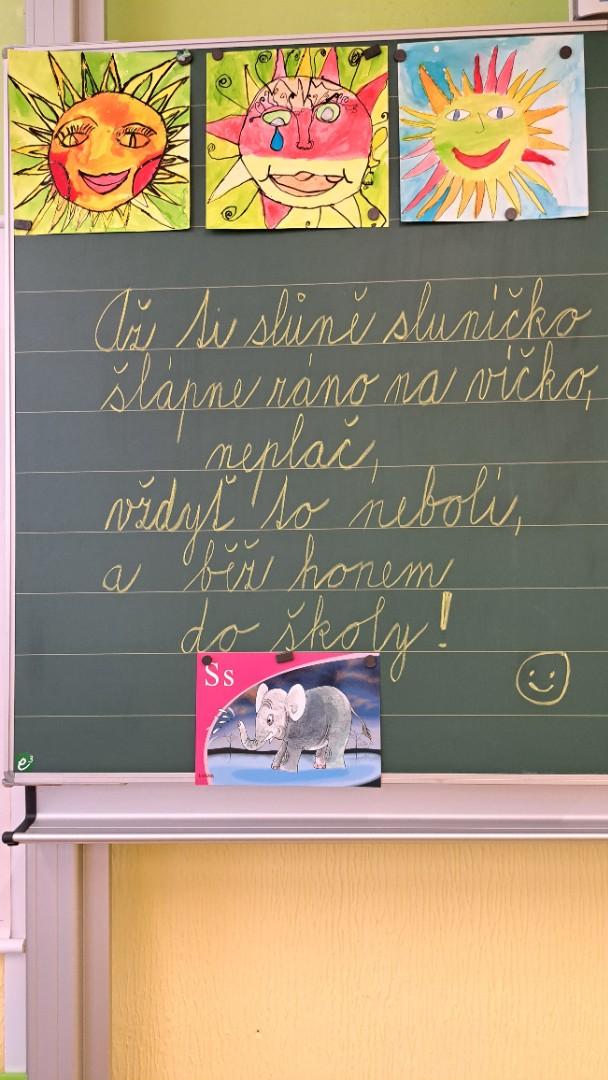 Až ti slůně sluníčko
šlápne ráno na víčko,
neplač,
vždyť to nebolí,
a běž honem
do školy!
S s
e³